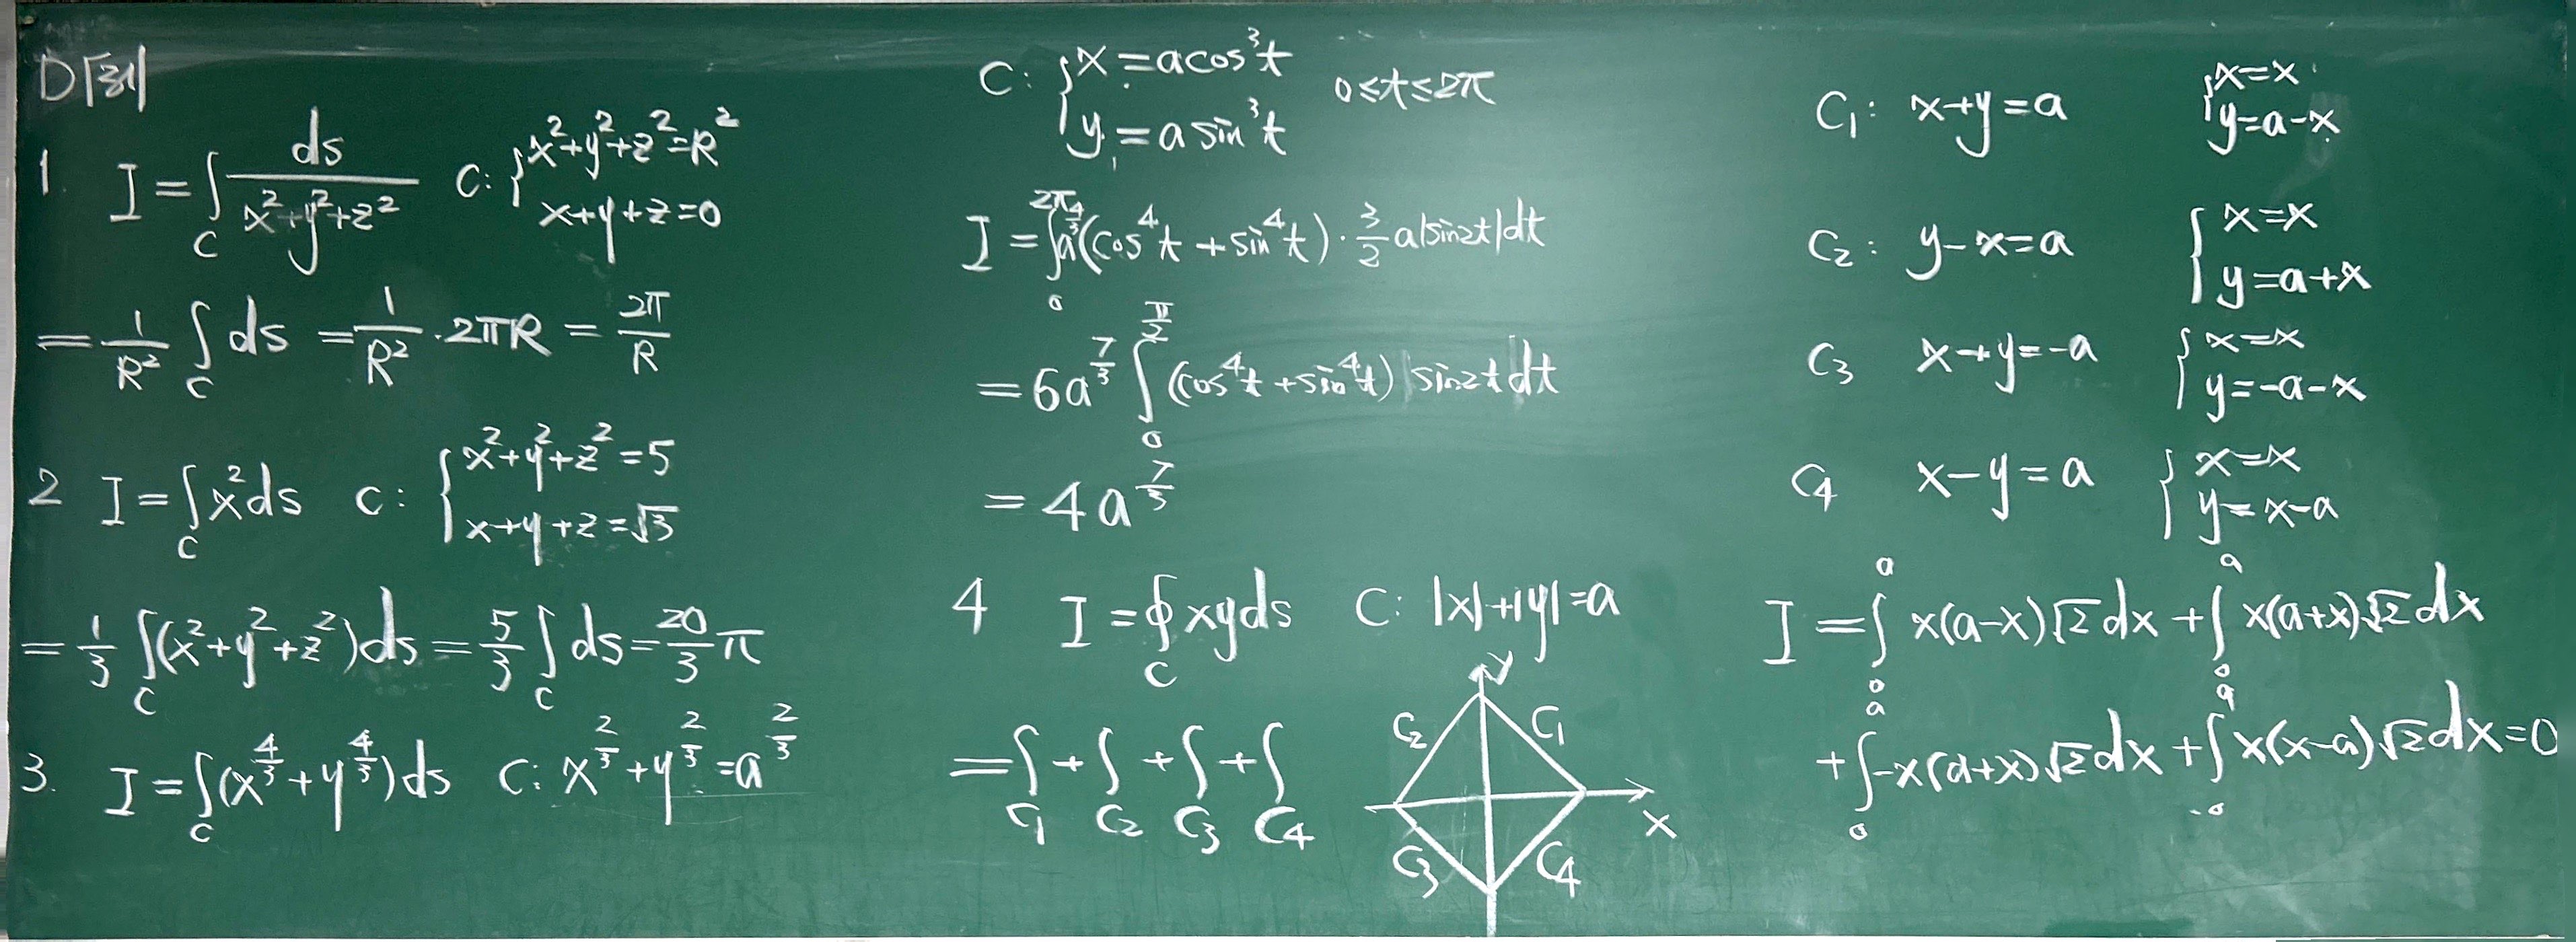 D[31]
1. I = ∫_C ds/(x²+y²+z²) C: { x²+y²+z²=R²
x+y+z=0
= 1/R² ∫_C ds = 1/R² · 2πR = 2π/R
2 I = ∫_C x² ds C: { x²+y²+z²=5
x+y+z=√3
= 1/3 ∫_C (x²+y²+z²)ds = 5/3 ∫_C ds = 20/3 π
3. I = ∫_C (x^{4/3}+y^{4/3})ds C: x^{2/3}+y^{2/3}=a^{2/3}
C: { x = a cos³t
y = a sin³t
0≤t≤2π
I = ∫_0^{2π} a^{4/3}(cos⁴t + sin⁴t) · 3/2 a|sin2t|dt
= 6a^{7/3} ∫_0^{π/2} (cos⁴t + sin⁴t) |sin2t|dt
= 4a^{7/3}
4 I = ∮_C xyds C: |x|+|y|=a
= ∫_{C₁} + ∫_{C₂} + ∫_{C₃} + ∫_{C₄}
y
C₂ C₁
x
C₃ C₄
C₁: x+y=a { x=x
y=a-x
C₂: y-x=a { x=x
y=a+x
C₃ x+y=-a { x=x
y=-a-x
C₄ x-y=a { x=x
y=x-a
I = ∫_0^a x(a-x)√2 dx + ∫_0^a x(a+x)√2 dx
+ ∫_0^a -x(a+x)√2 dx + ∫_0^a x(x-a)√2 dx = 0